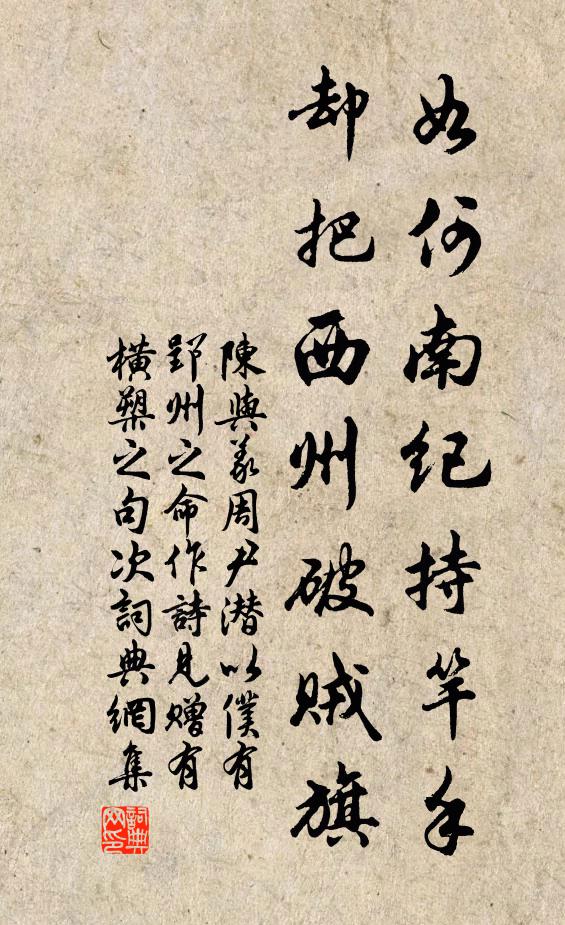 如何南紀持竿手
却把西州破賊旗
陳與義周尹潜以僕有
郢州之命作詩見贈有
橫槊之句次詞典網集
詞典
网印